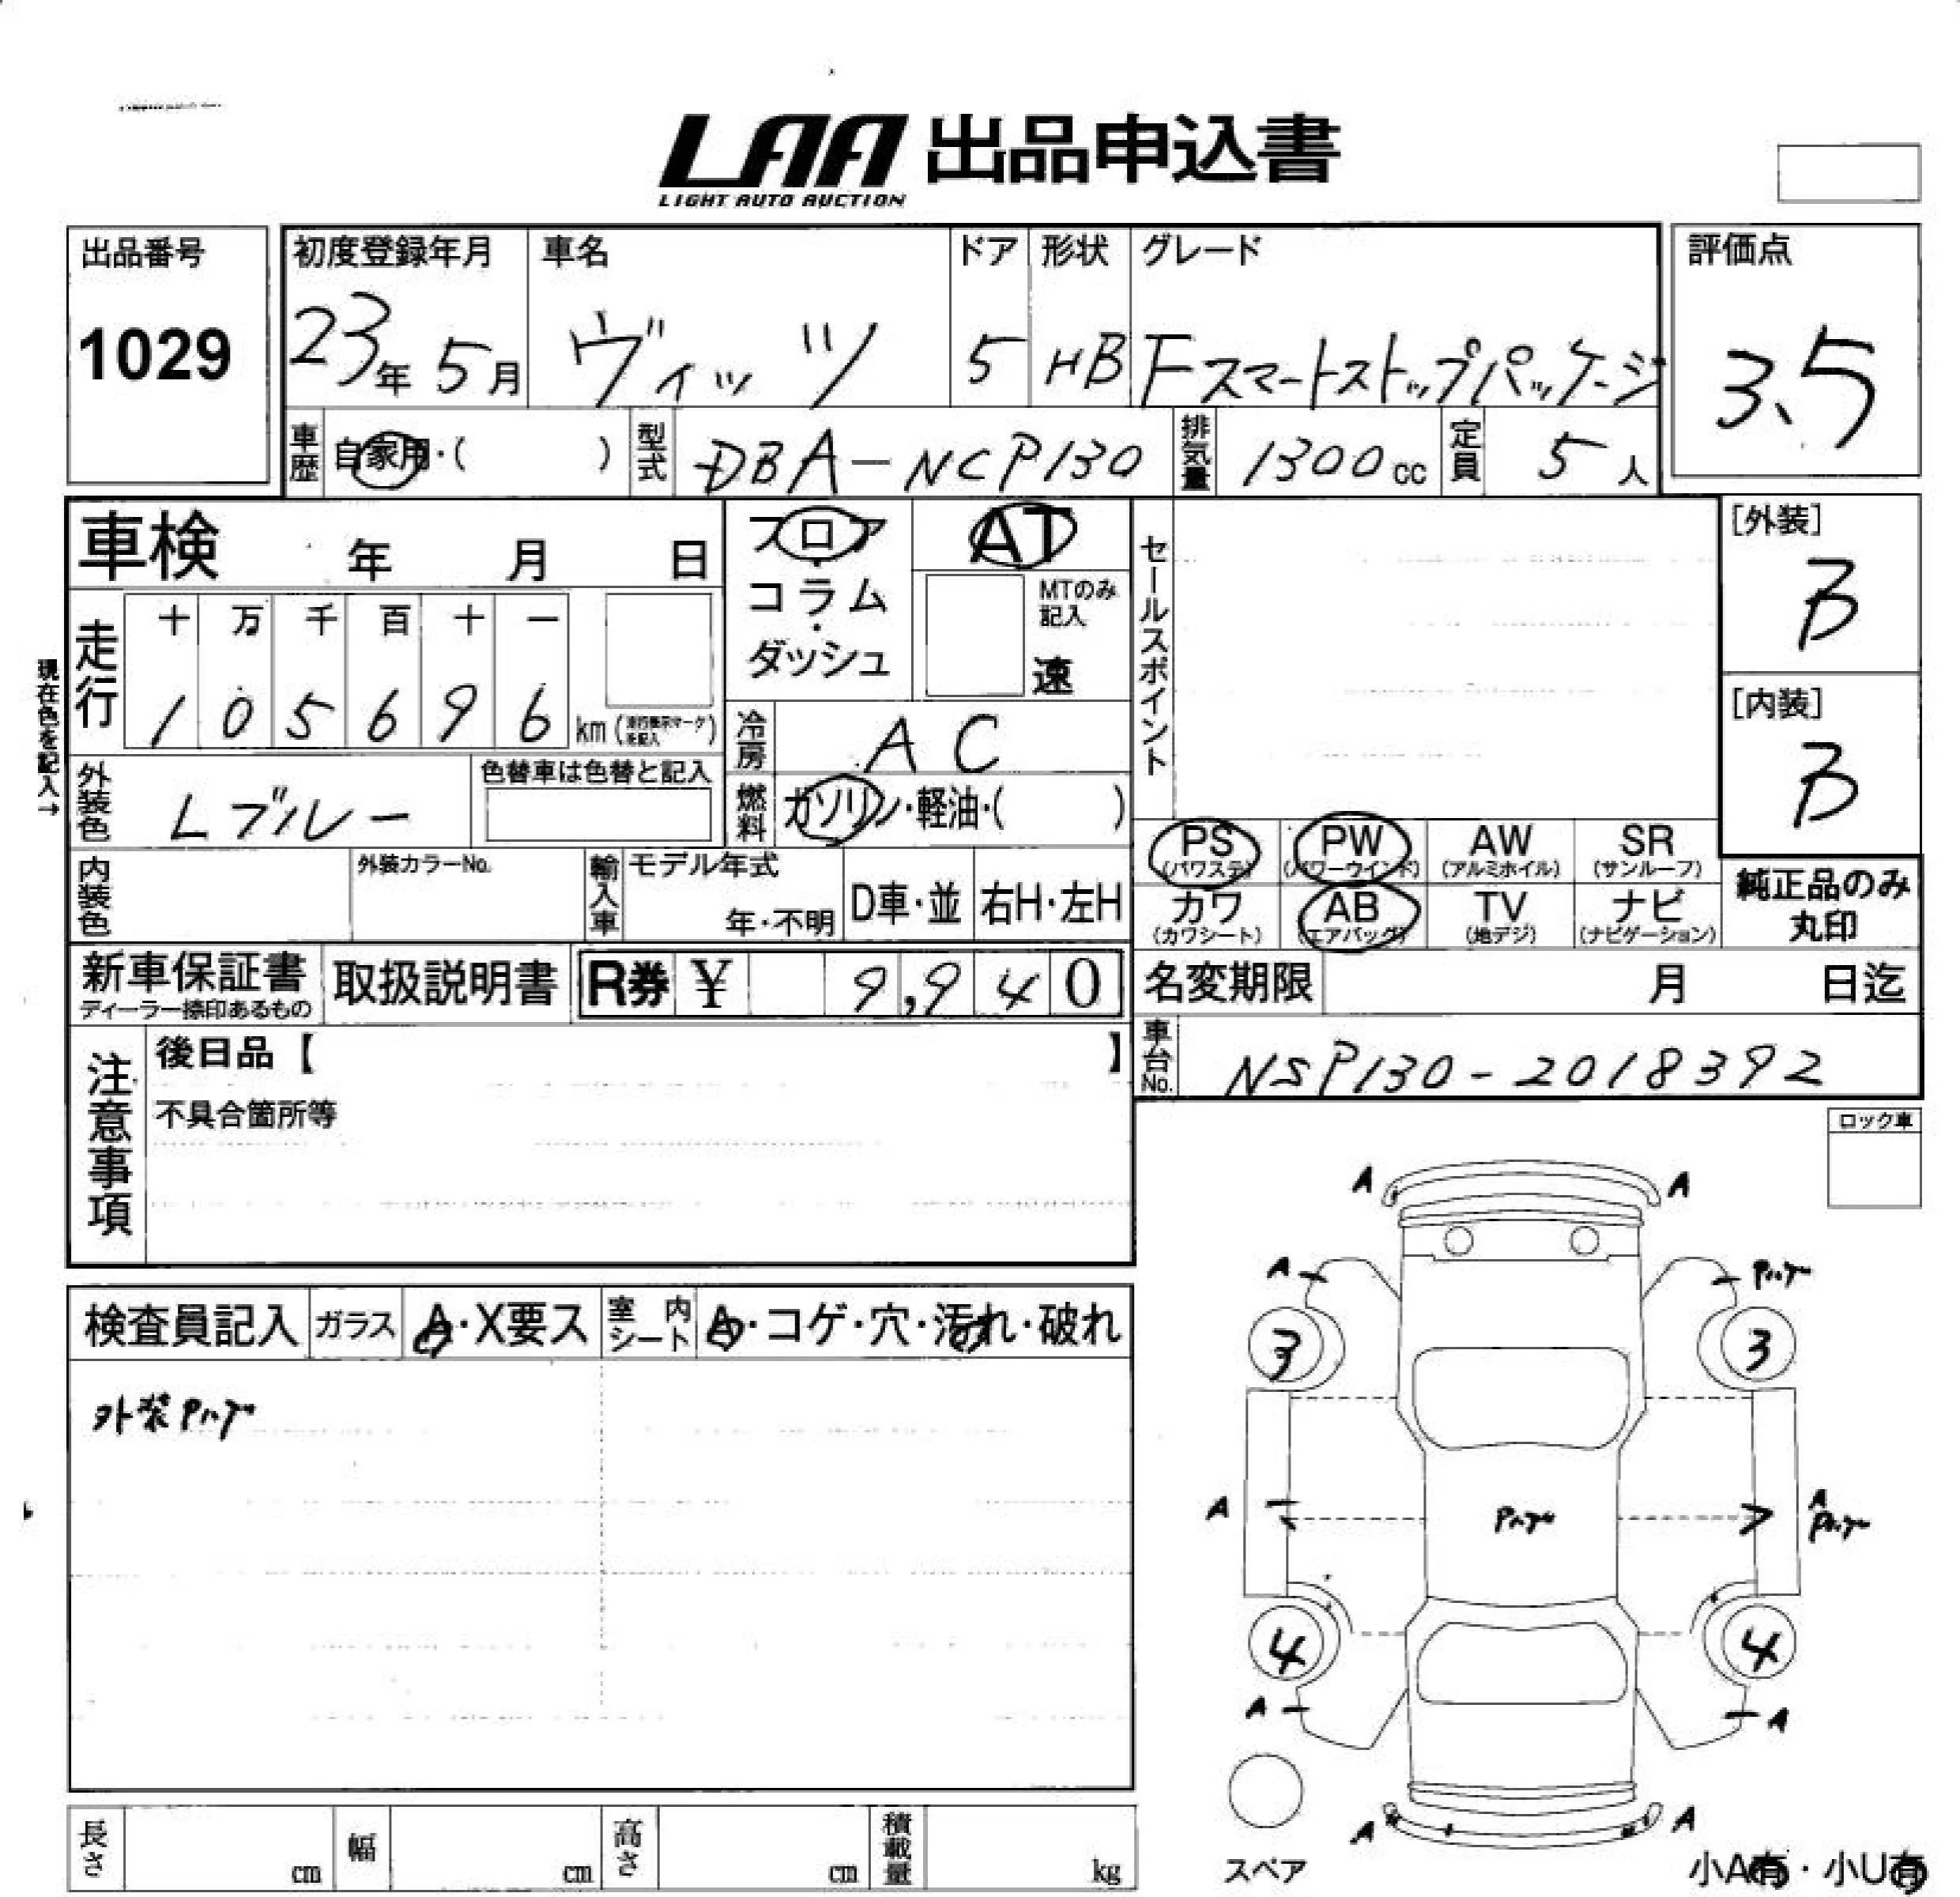 LAA 出品申込書
LIGHT AUTO AUCTION
出品番号
1029
初度登録年月
23年 5月
車名
ヴィッツ
ドア
5
形状
HB
グレード
Fスマートストップパッケージ
評価点
3.5
車歴 自家用・( )
型式 DBA-NCP130
排気量 1300cc
定員 5人
車検 年 月 日
フロア・コラム・ダッシュ
AT
MTのみ記入
速
セールスポイント
[外装]
B
[内装]
B
現在色を記入→
走行
十 万 千 百 十 一
1 0 5 6 9 6 km(走行表示マークを記入)
冷房 AC
外装色 Lブルー
色替車は色替と記入
燃料 ガソリン・軽油・( )
PS (パワステ)
PW (パワーウインド)
AW (アルミホイル)
SR (サンルーフ)
カワ (カワシート)
AB (エアバッグ)
TV (地デジ)
ナビ (ナビゲーション)
純正品のみ
丸印
内装色
外装カラーNo.
輸入車
モデル年式
年・不明
D車・並
右H・左H
新車保証書
ディーラー捺印あるもの
取扱説明書
R券 ¥ 9,940
名変期限 月 日迄
車台No. NSP130-2018392
注意事項
後日品【 】
不具合箇所等
ロック車
検査員記入
ガラス A・X要ス
室内シート A・コゲ・穴・汚れ・破れ
外装Pハゲ
A A
A Pハゲ
3 3
A Pハゲ A
Pハゲ
4 4
A A
A A
スペア
小A有・小U有
長さ cm
幅 cm
高さ cm
積載量 kg